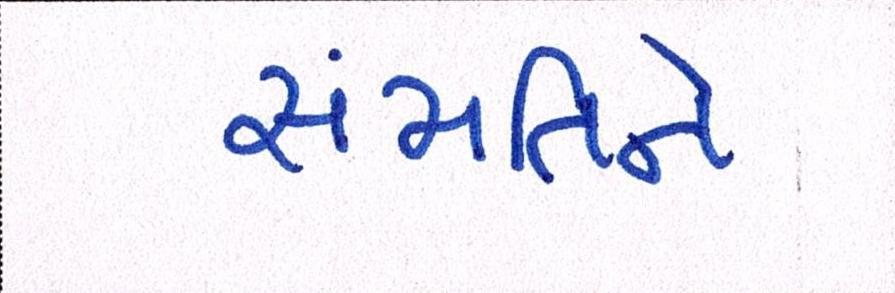 સંમતિને